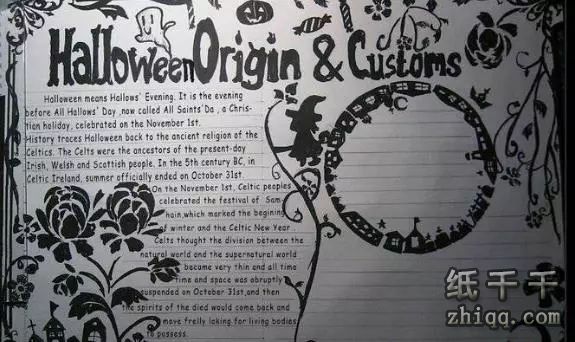 Halloween Origin & Customs
Halloween means Hallows' Evening. It is the evening
before All Hallows' Day ,now called All Saints'Da , a Chris-
tian holiday, celebrated on November 1st.
History traces Halloween back to the ancient religion of the
Celtics. The Celts were the ancestors of the present-day
Irish, Welsh and Scottish people. In the 5th century BC, in
Celtic Ireland, summer officially ended on October 31st.
On the November 1st, Celtic peoples
celebrated the festival of Sam
hain,which marked the begining
of winter and the Celtic New Year
Celts thought the division between the
natural world and the supernatural world
became very thin and all time
time and space was abruptly
suspended on October 31st,and then
the spirits of the died would come back and
move frelly loking for living bodies
to possess.
C
纸千千
zhiqq.com